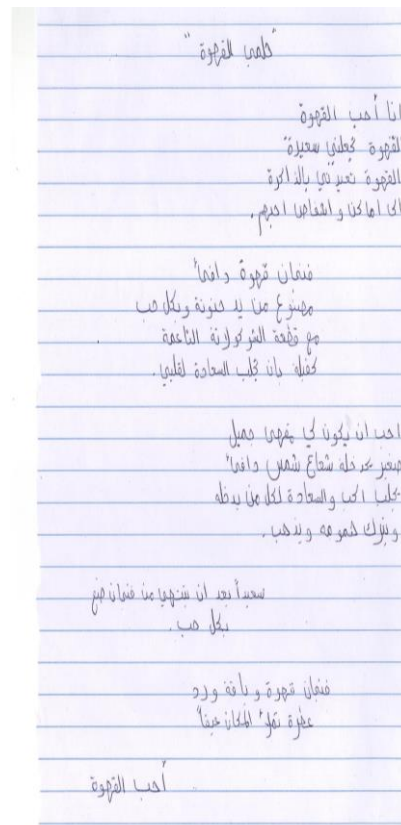 "حلمي القهوة"
انا أحب القهوة
القهوة تجعلني سعيدة
القهوة تعيدني بالذاكرة
الى اماكن و اشخاص احبهم.
فنجان قهوة دافئ
مصنوع من يد حنونة وبكل حب
مع قطعة الشوكولاتة الناعمة
كفيلة بان تجلب السعادة لقلبي.
احب ان يكون لي مقهى جميل
صغير يدخله شعاع شمس دافئ
يجلب الحب والسعادة لكل من يدخله
ويترك همومه ويذهب.
سعيداً بعد ان ينتهي من فنجان صنع
بكل حب.
فنجان قهوة و باقة ورد
عطرة تملأ المكان حباً
أحب القهوة